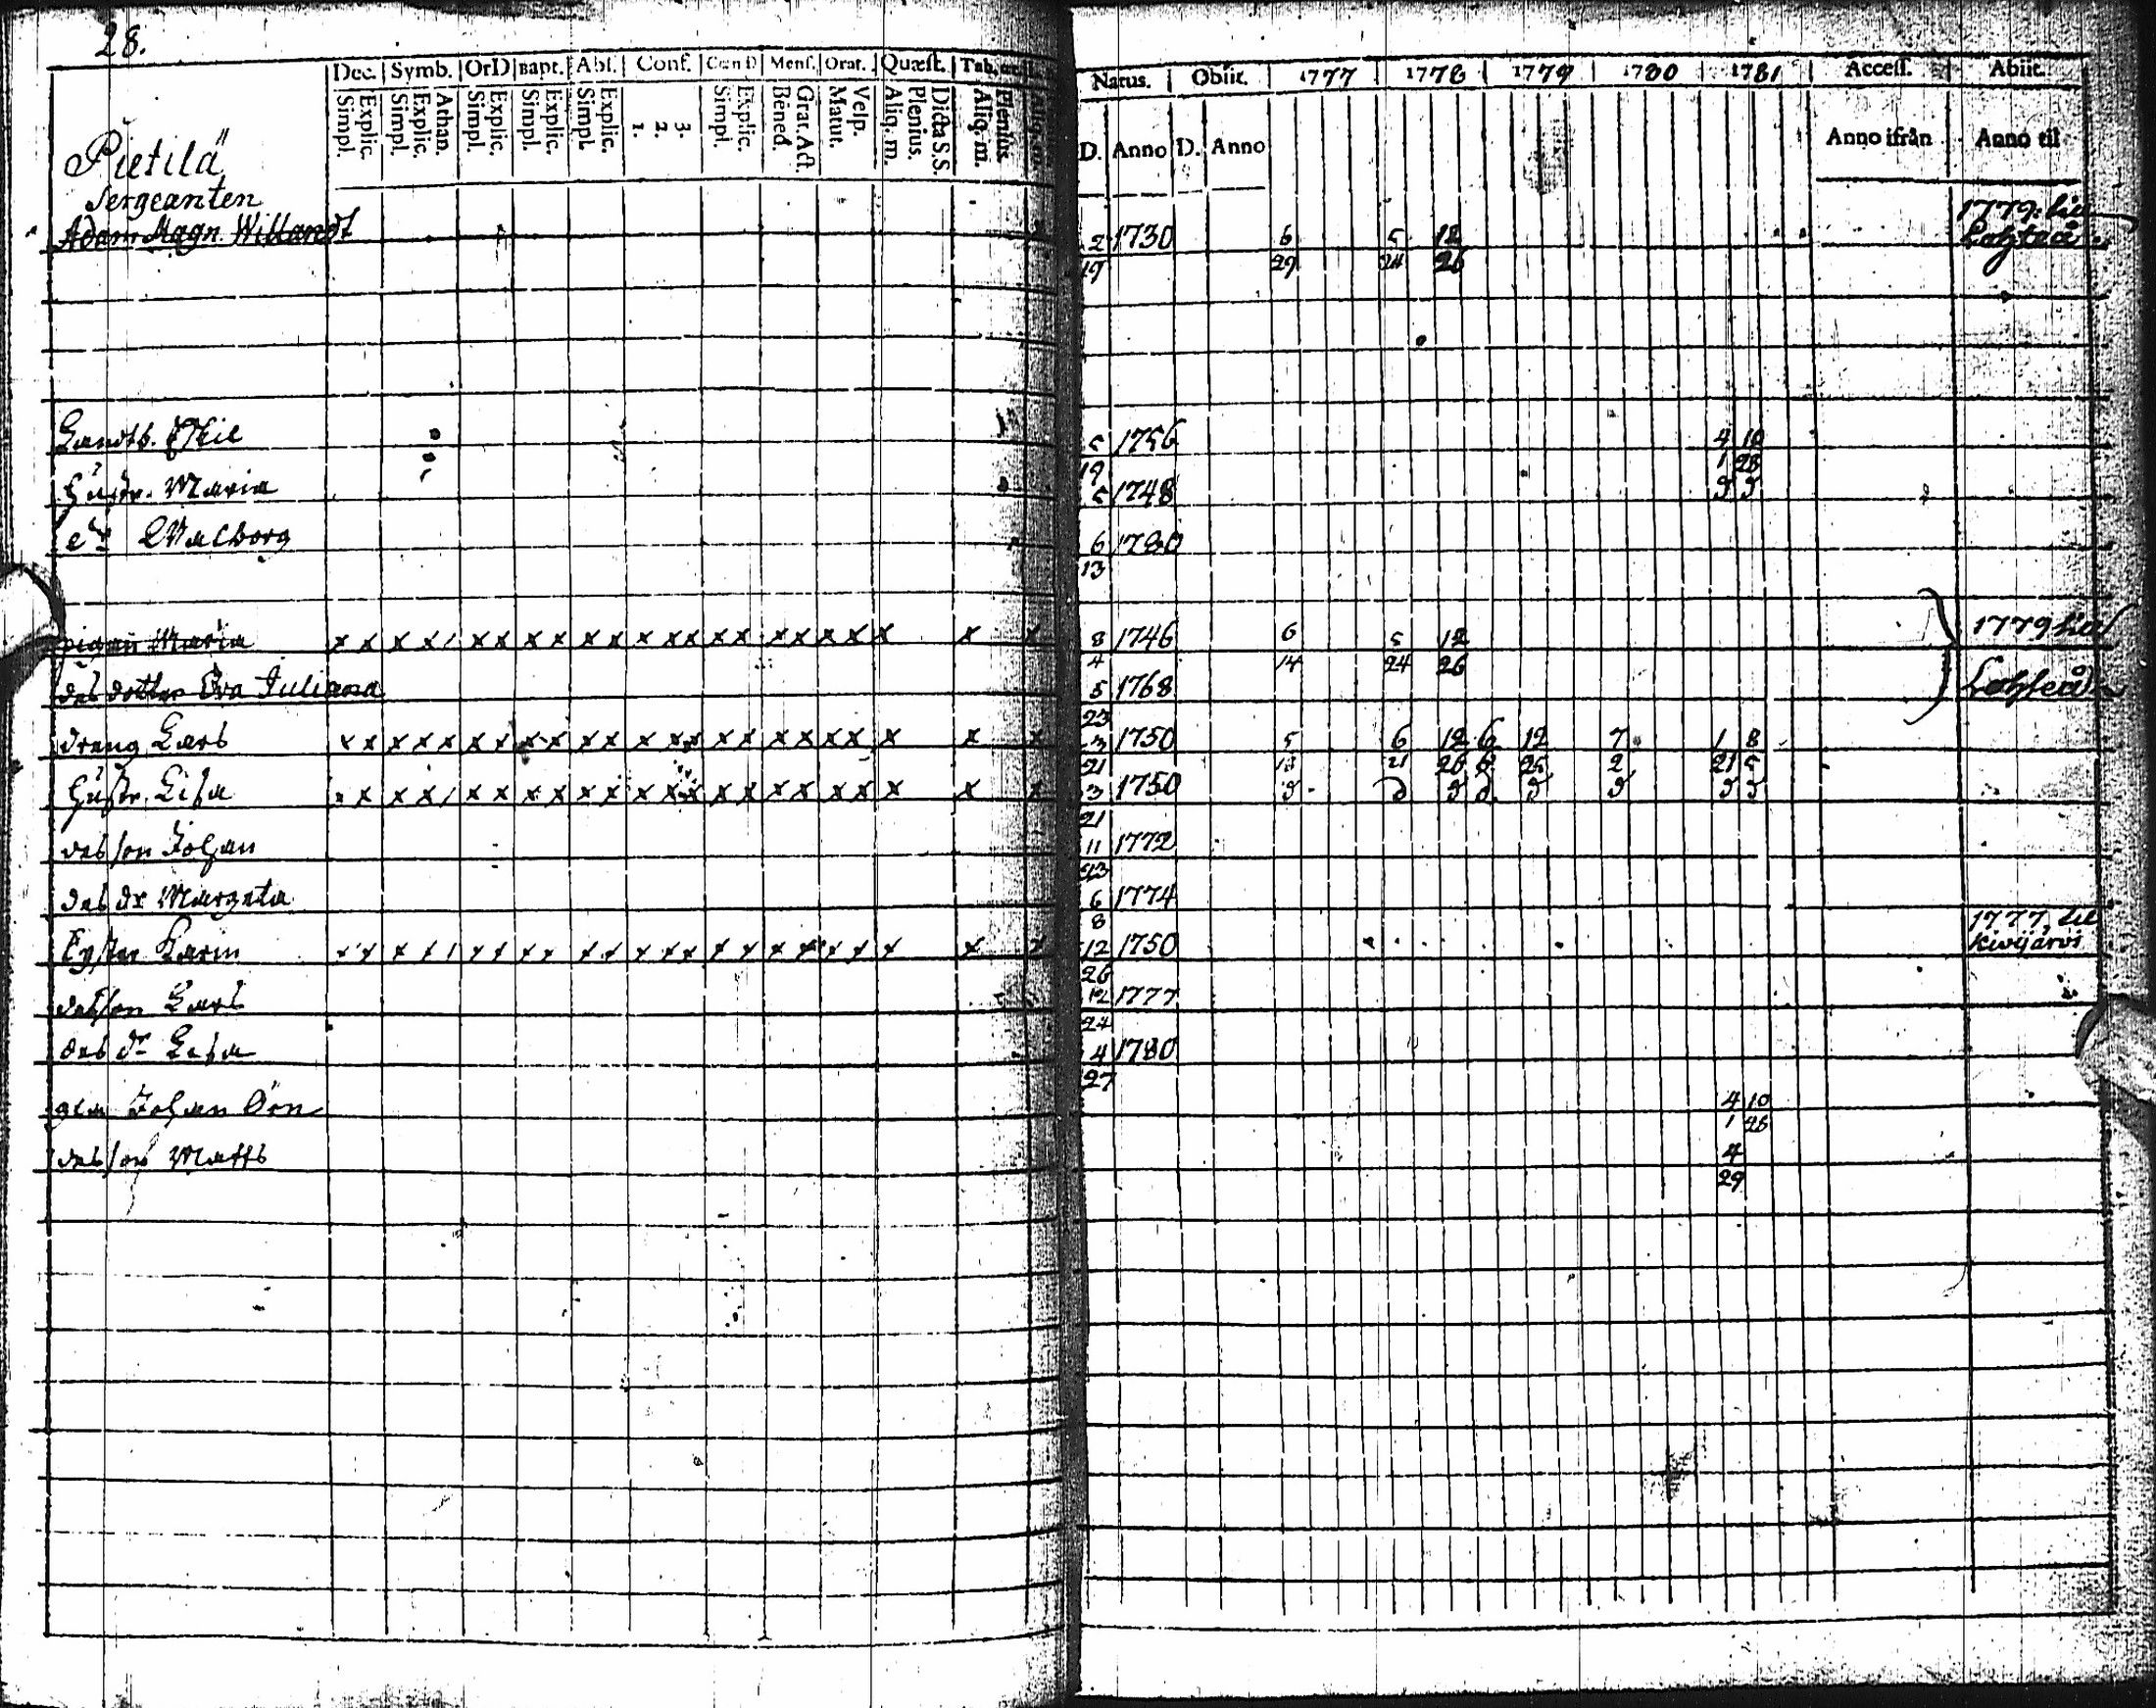 28.
Dec. Symb. OrD Bapt. Abs. Conf. Cœn D Menſ. Orat. Quæſt. Tab.
Simpl. Explic. Simpl. Explic. Athan. Simpl. Explic. Simpl. Explic. Simpl. Explic. 1. 2. 3. Simpl. Explic. Bened. Grat. Act. Matut. Veſp. Aliq. m. Plenius. Dicta S.S. Aliq. m. Plenius.
Natus. Obiit. 1777 1778 1779 1780 1781 Acceſſ. Abiit.
D. Anno D. Anno Anno ifrån Anno til
Pietilä
Sergeanten
Adam Magn. Willandt 2 1730 6 5 12 1779
19 29 24 26
Landtb. 5 1756 4 10
19 1 28
Hustr. Maria 5 1748 D D
Walborg 6 1780
13
pigan Maria x x x x / x x x x x x x x x x x x x x x x x x 8 1746 6 5 12 1779
4 14 24 26
des dotter Eva Juliana 5 1768
23
dräng Lars x x x x x x x x x x x x x x x x x x x x x x x 3 1750 5 6 12 6 12 7 1 8
21 21 26 25 2 21 5
Hustr. Lisa x x x x / x x x x x x x x x x x x x x x x x x 3 1750 D D D D D D D D
21
des son Johan 11 1772
23
des dr Margeta 6 1774
8
Syster Karin 12 1750 1777, til
Kivijärvi
26
des son Lars 12 1777
24
des dr Lisa 4 1780
27
Johan Örn 4 10
1 28
des son Matts 4
29